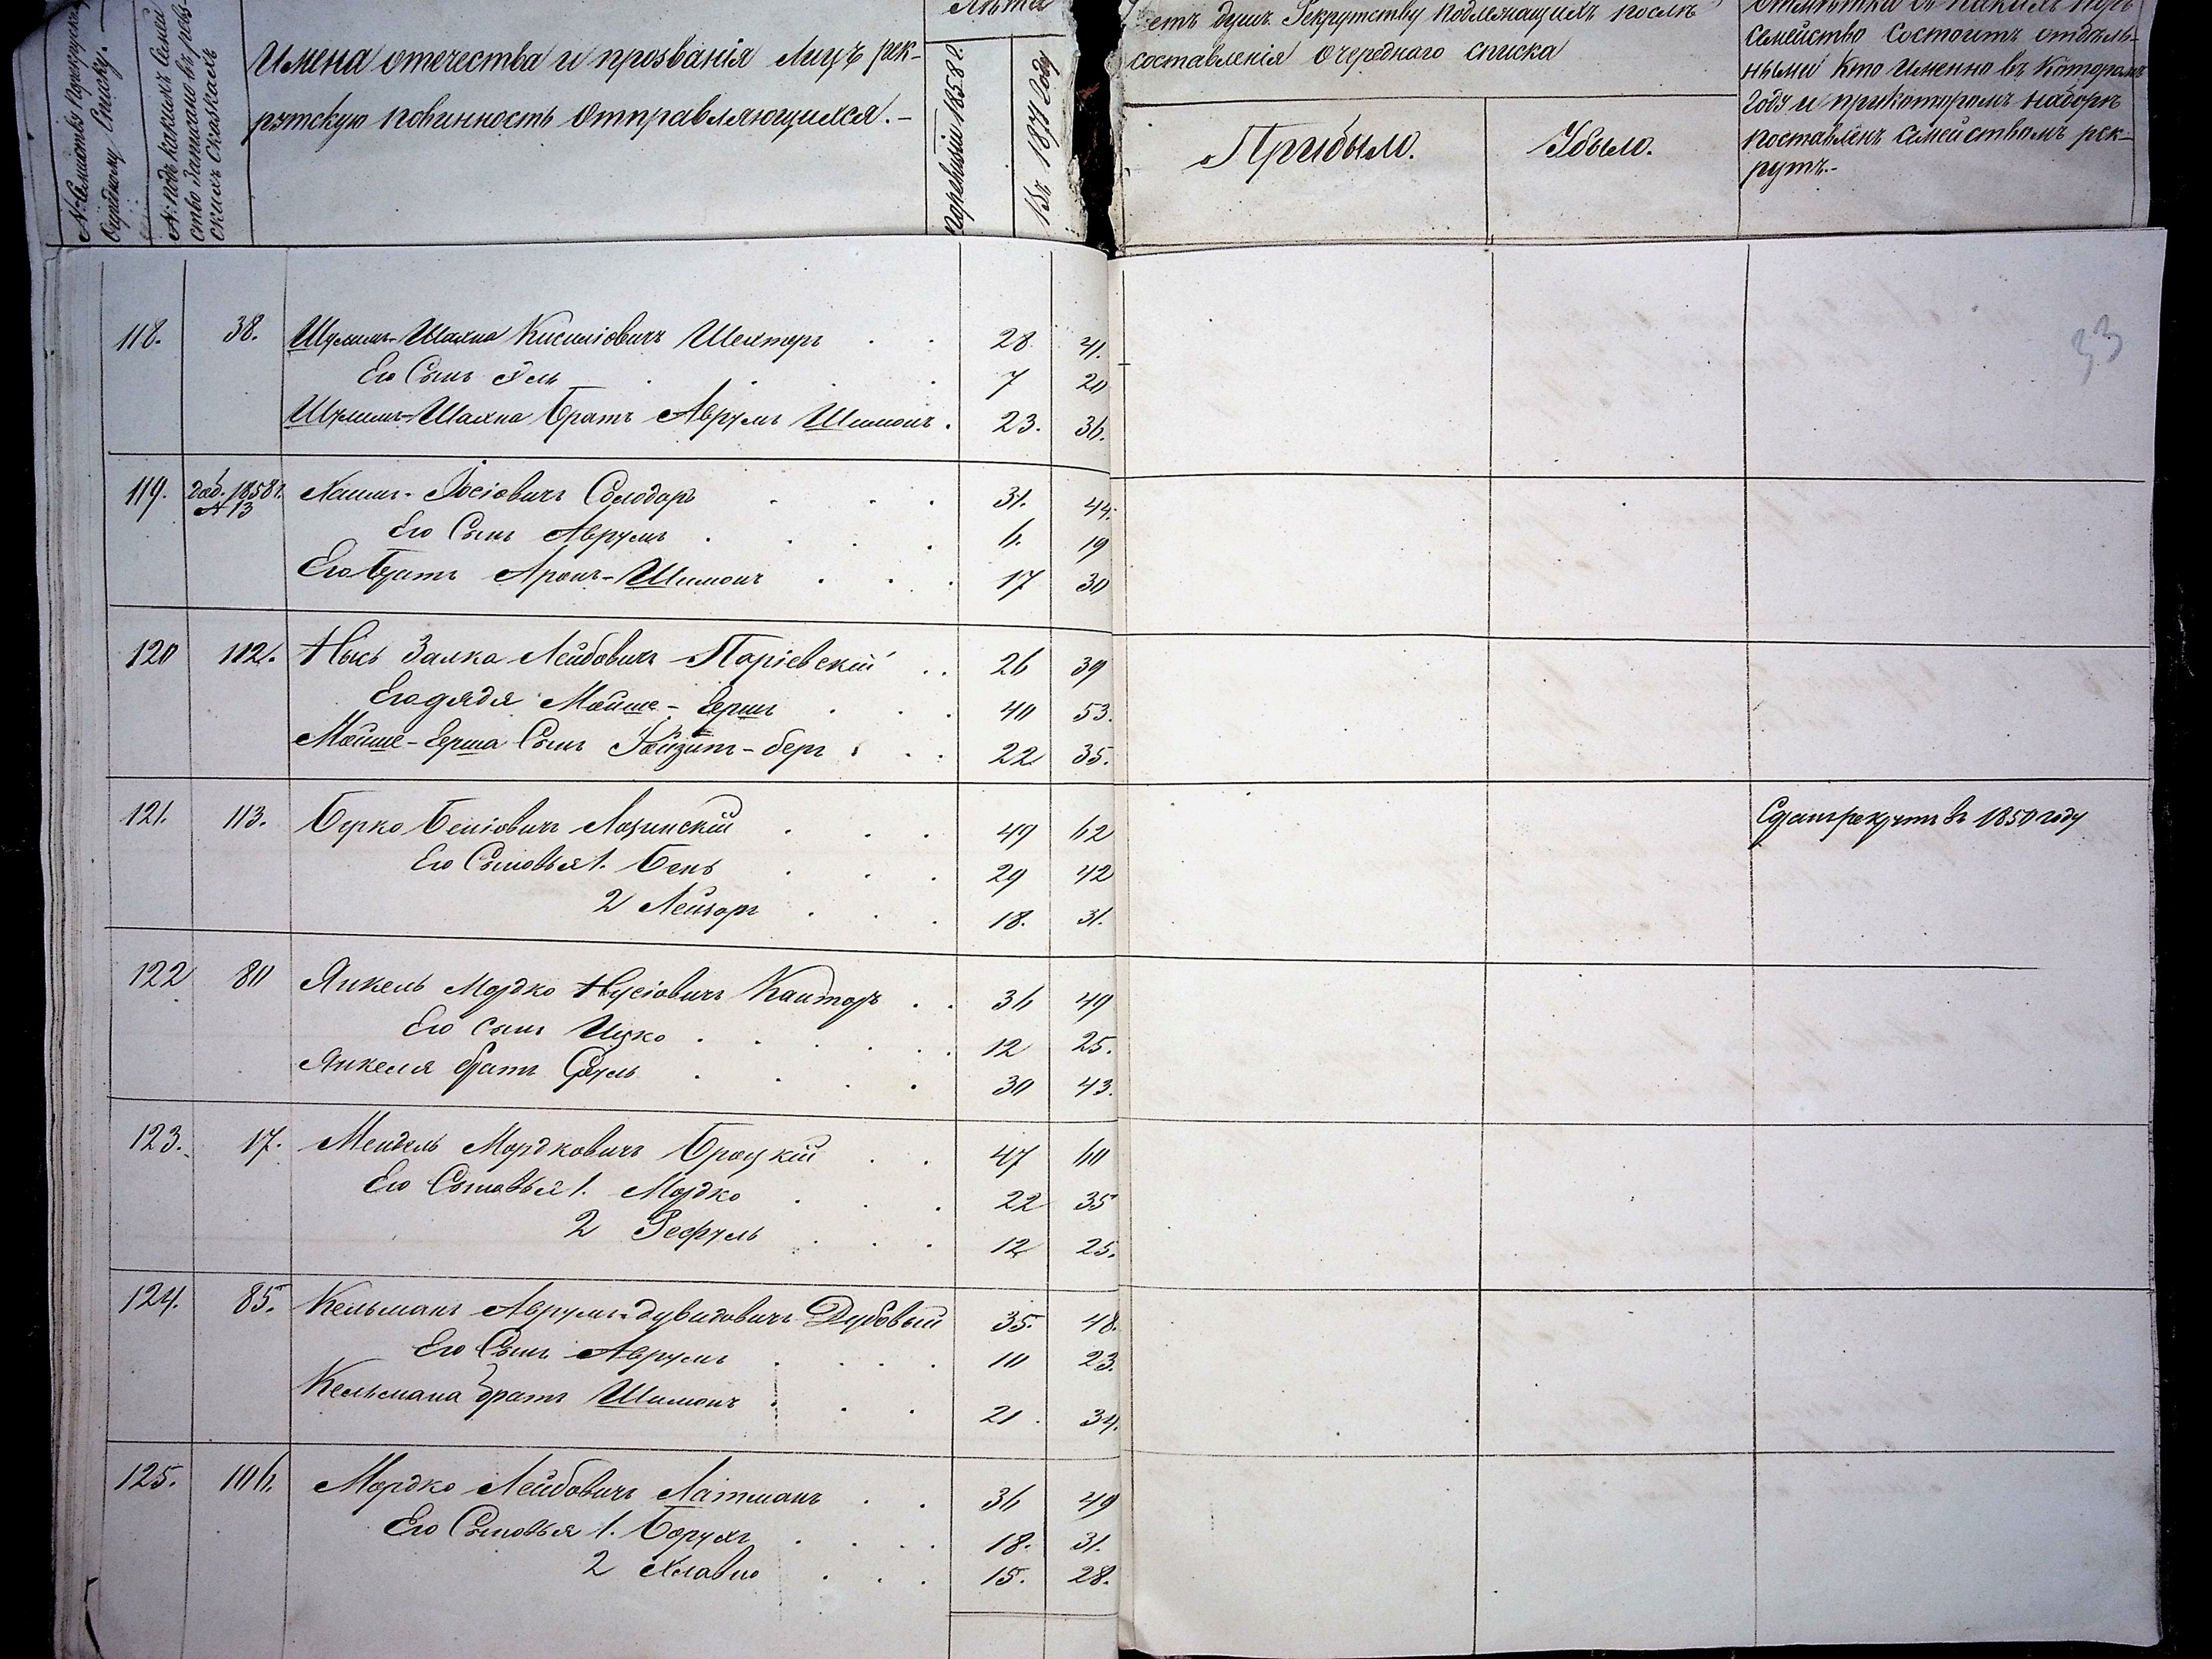 № Семейства по рекрутскому
Очередному Списку.
№ подъ какимъ Семей
ство Записано въ реви
скихъ Сказкахъ
Имена отечества и прозванія Лицъ рек-
рутскую повинность Отправляющихся.-
Лѣта
По ревизіи 1858 г.
Въ 1871 Году
етъ душъ Рекрутству подлежащихъ послѣ
составленія Очереднаго списка
Прибыло.
Убыло.
Семейство Состоитъ отдѣль-
ными Кто Именно въ Которомъ
Году и при которомъ наборѣ
поставленъ Семействомъ рек-
рутъ.-
33
118. 38. Шулимъ-Шахна Кисиліовичъ Шехтеръ 28 41.
Его Сынъ Эль 7 20
Шулимъ-Шахна братъ Аврумъ Шимонъ. 23. 36.
119. доб. 1858 г. Хаимъ-Іосіовичъ Солодаръ 31. 44.
№ 13
Его Сынъ Аврумъ 6. 19
Его братъ Аронъ-Шимонъ 17 30
120 112. Нысь Залка Лейбовичъ Паріевскій 26 39
Его дядя Мойше-Герш 40 53.
Мойше-Герша Сынъ Бер 22 35.
121. 113. Берко Беніовичъ Лозинскій 49 62 Сданъ рекрутъ въ 1850 году
Его Сыновья 1. Бень 29 42
2 Лейзоръ 18. 31.
122 80 Янкель Мордко Нусіовичъ Канторъ 36 49
Его сынъ Ицко 12 25.
Янкеля братъ Сруль 30 43.
123. 17. Мендель Мордковичъ Броцкій 47 60
Его Сыновья 1. Мордко 22 35
2 Рефуль 12 25.
124. 85. Кельманъ Аврумъ-Дувидовичъ Дубовый 35. 48.
Его Сынъ Аврумъ 10 23.
Кельмана братъ Шимонъ 21. 34.
125. 106. Мордко Лейбовичъ Латманъ 36 49
Его Сыновья 1. Борухъ 18. 31.
2 Хлавно 15. 28.